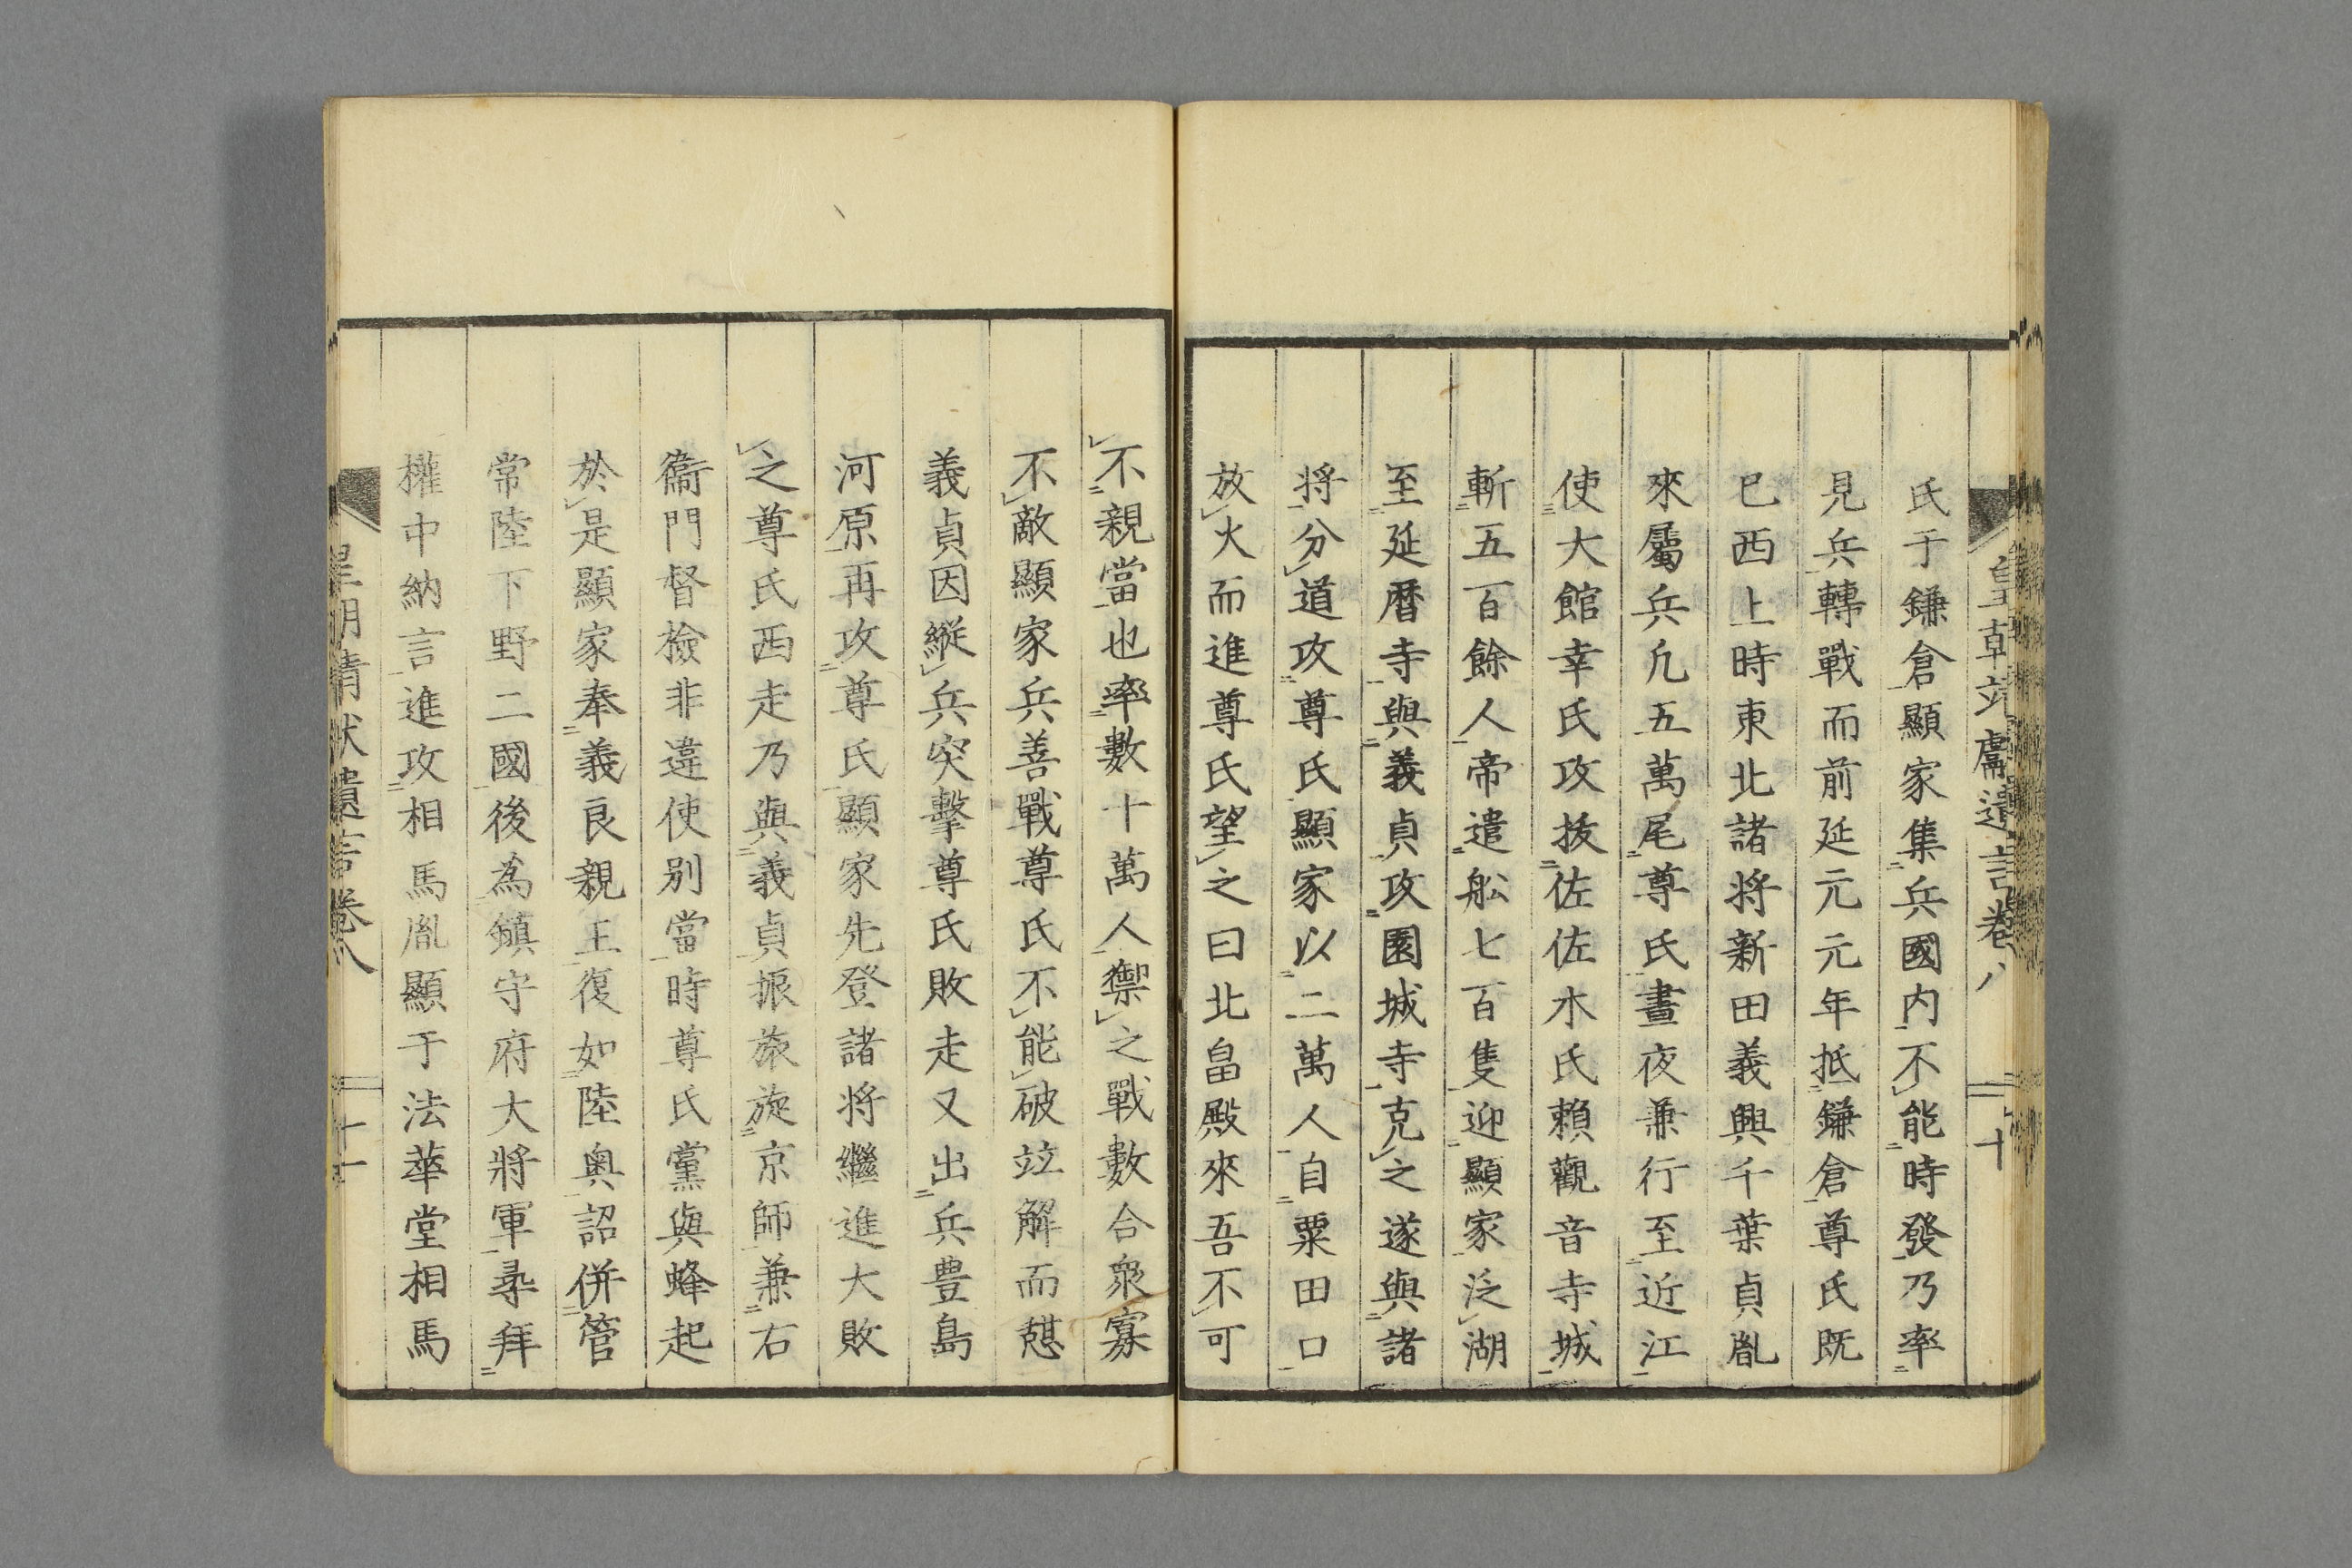 氏于鎌倉顯家集兵國内不能時發乃率
見兵轉戰而前延元元年抵鎌倉尊氏既
已西上時東北諸将新田義興千葉貞胤
來屬兵凢五萬尾尊氏晝夜兼行至近江
使大館幸氏攻抜佐佐木氏賴觀音寺城
斬五百餘人帝遣舩七百隻迎顯家泛湖
至延暦寺與義貞攻園城寺克之遂與諸
将分道攻尊氏顯家以二萬人自粟田口
放火而進尊氏望之曰北畠殿來吾不可
不親當也率數十萬人禦之戰數合衆寡
不敵顯家兵善戰尊氏不能破竝解而憇
義貞因縦兵突擊尊氏敗走又出兵豊島
河原再攻尊氏顯家先登諸将繼進大敗
之尊氏西走乃與義貞振旅旋京師兼右
衞門督檢非違使别當時尊氏黨與蜂起
於是顯家奉義良親王復如陸奥詔併管
常陸下野二國後為鎮守府大將軍尋拜
權中納言進攻相馬胤顯于法華堂相馬
遺言卷八
十一